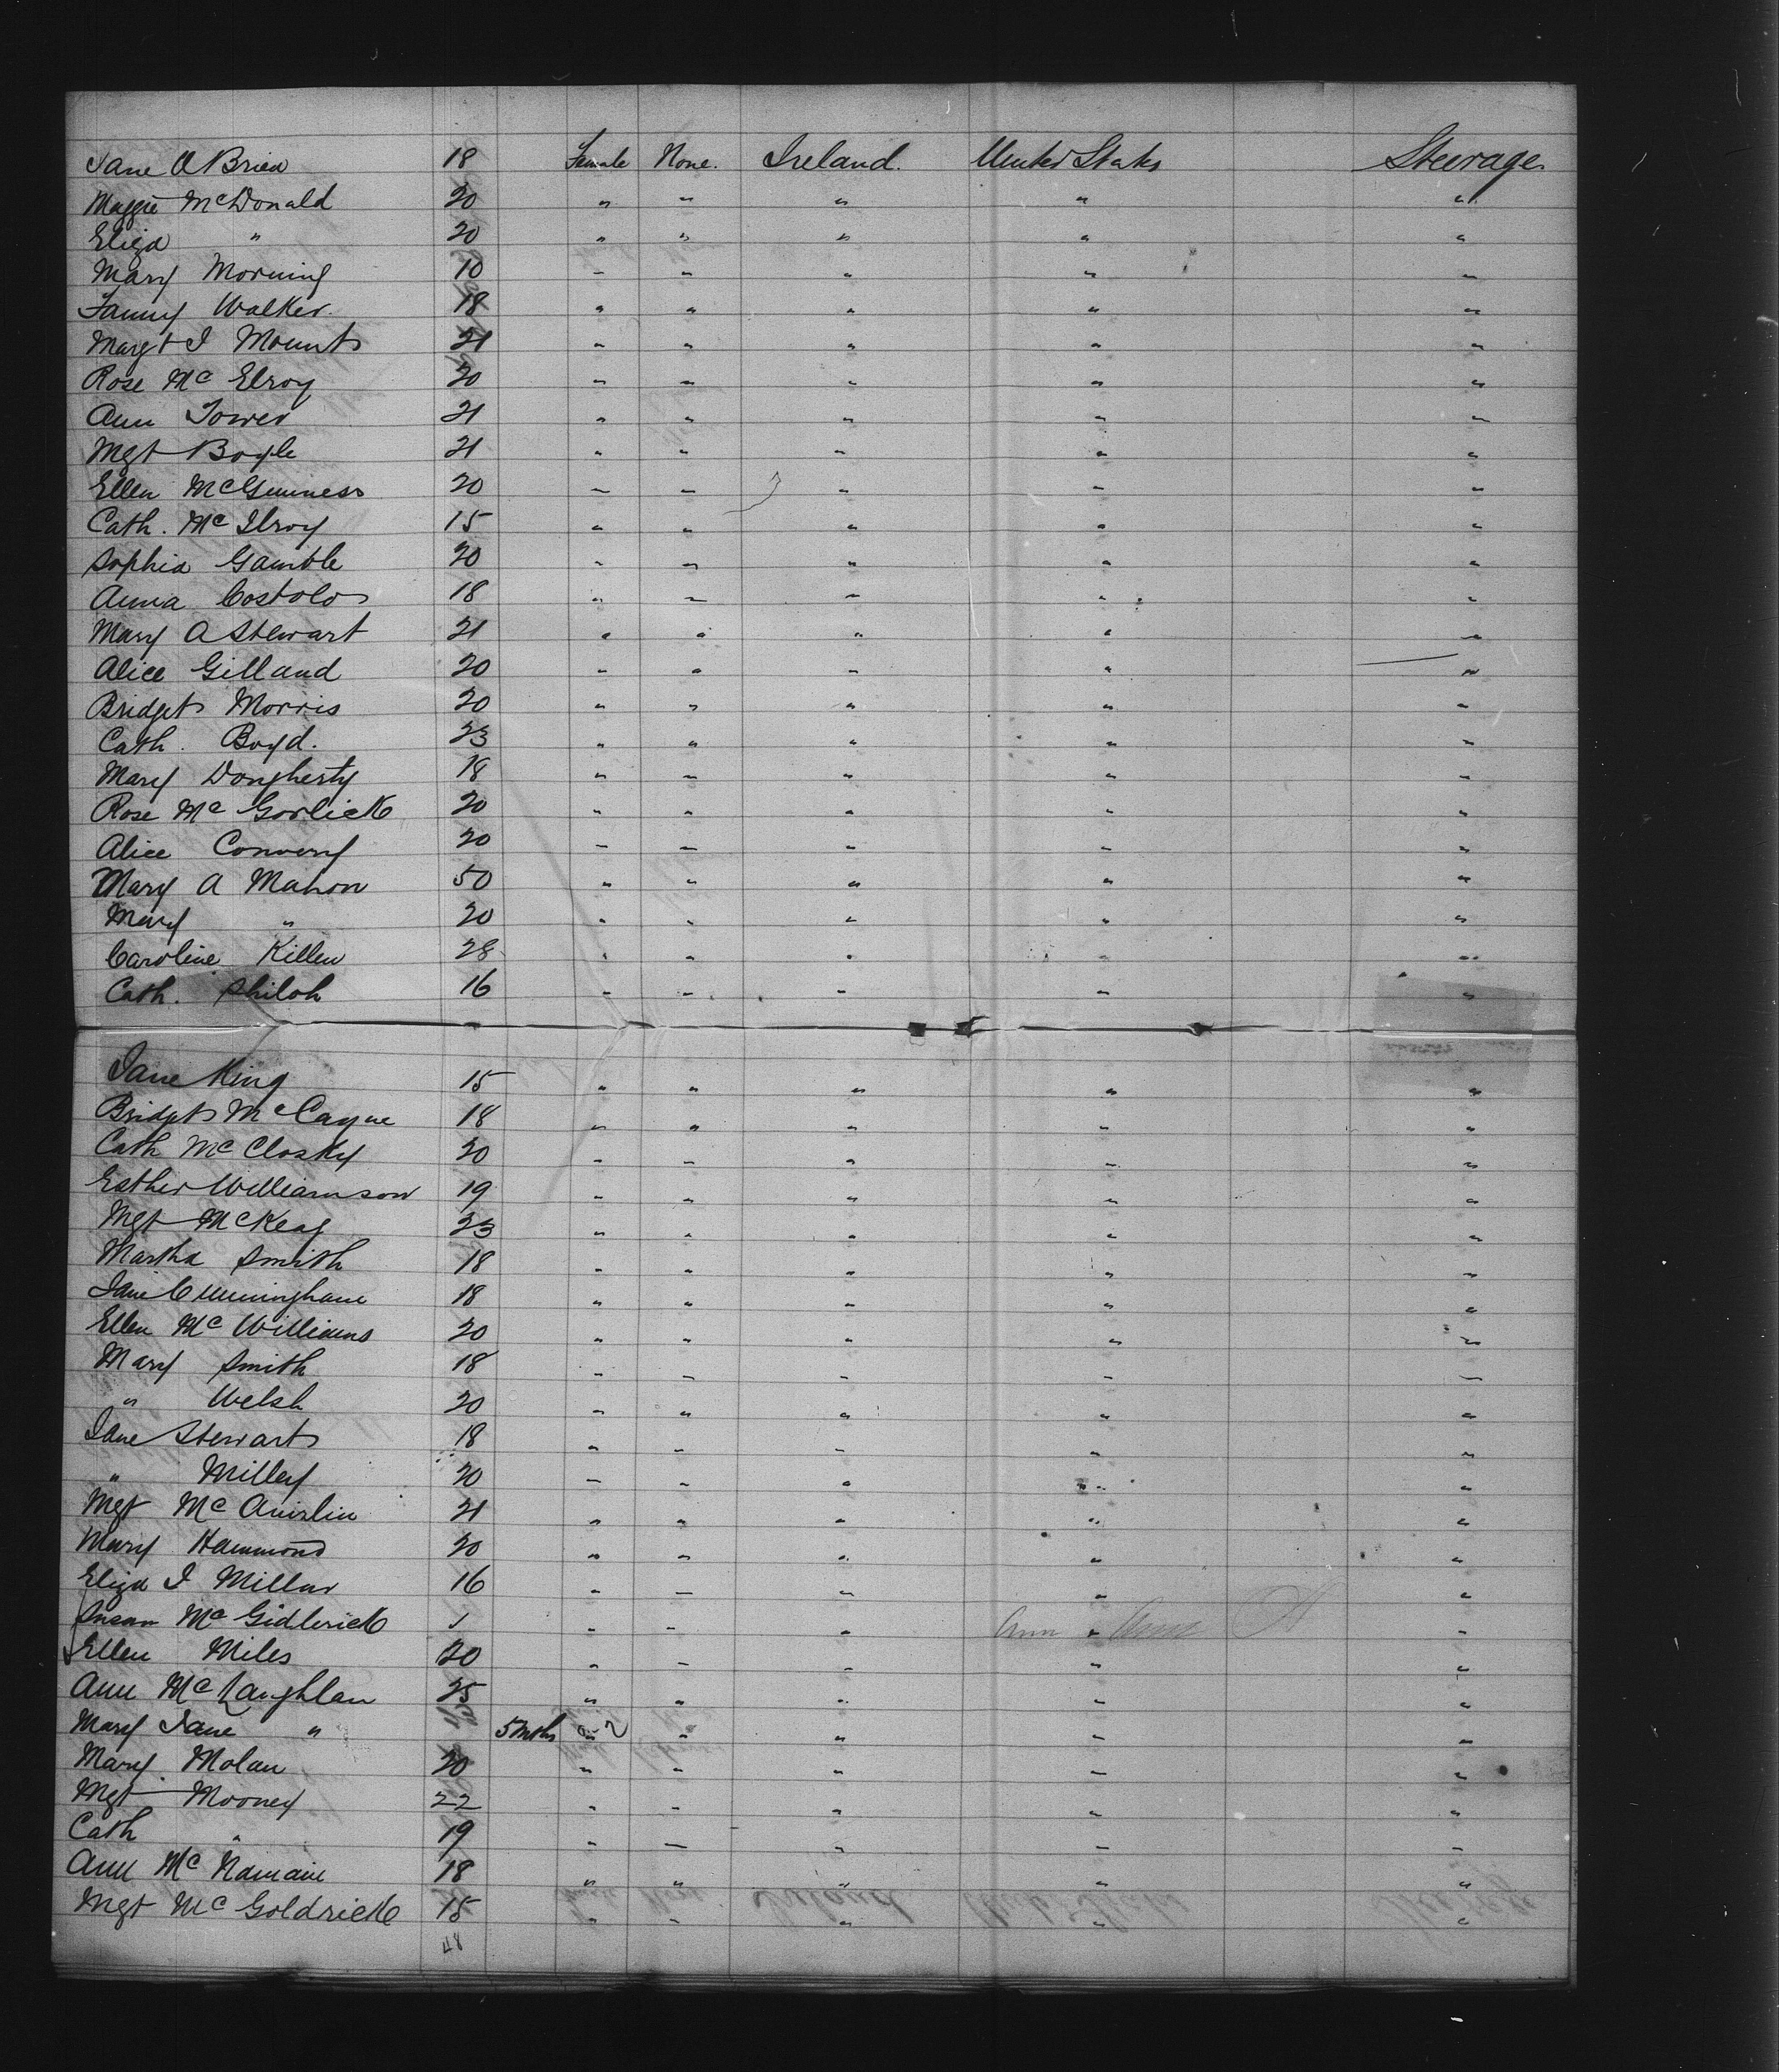 Jane O'Brien 18 Female None. Ireland. United States Steerage
Maggie McDonald 20 " " " " "
Eliza " 20 " " " " "
Mary Morning 10 " " " " "
Fanny Walker. 18 " " " " "
Margt J Mount 21 " " " " "
Rose Mc Elroy 20 " " " " "
Ann Tower 21 " " " " "
Mgt Boyle 21 " " " " "
Ellen McGuiness 20 " " " " "
Cath. Mc Ilroy 15 " " " " "
Sophia Gamble 20 " " " " "
Anna Costolo 18 " " " " "
Mary A Stewart 21 " " " " "
Alice Gilland 20 " " " " "
Bridget Morris 20 " " " " "
Cath. Boyd. 23 " " " " "
Mary Dougherty 18 " " " " "
Rose Mc Gorlick 20 " " " " "
Alice Convery 20 " " " " "
Mary A Mahon 50 " " " " "
Mary " 20 " " " " "
Caroline Killen 28 " " " " "
Cath. Shiloh 16 " " " " "
Jane King 15 " " " " "
Bridget McCague 18 " " " " "
Cath McClosky 20 " " " " "
Esther Williamson 19 " " " " "
Mgt McKeag 23 " " " " "
Martha Smith 18 " " " " "
Jane Cunningham 18 " " " " "
Ellen Mc Williams 20 " " " " "
Mary Smith 18 " " " " "
" Welsh 20 " " " " "
Jane Stewart 18 " " " " "
" Milley 20 " " " " "
Mgt Mc 21 " " " " "
Mary Hammond 20 " " " " "
Eliza J Millar 16 " " " " "
Susan Mc Gidlerick 1 " " " Ann " Ann "
Ellen Miles 20 " " " " "
Ann Mc Laughlan 25 " " " " "
Mary Jane " 5 mths " " " " "
Mary Molan 20 " " " " "
Mgt Mooney 22 " " " " "
Cath " 19 " " " " "
Ann Mc Namain 18 " " " " "
Mgt Mc Goldrick 15 " " " " "
48